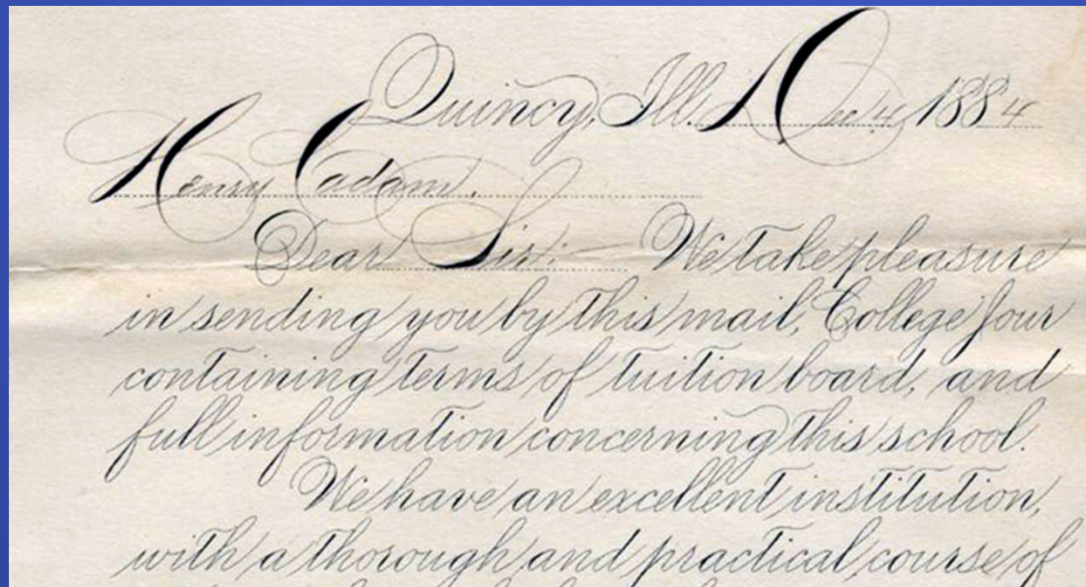 Quincy, Ill. Dec 4 1884
Henry Eadam.
Dear Sir:— We take pleasure
in sending you by this mail, College Jour
containing terms of tuition board, and
full information concerning this school.
We have an excellent institution,
with a thorough and practical course of